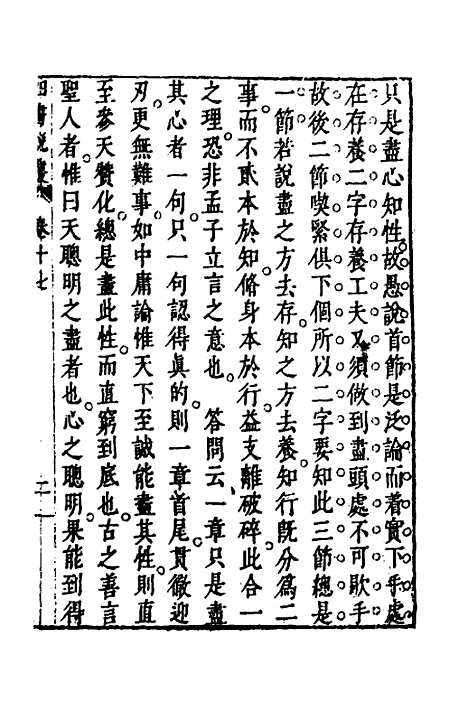 只是盡心知性故愚說首節是泛論而着實下手處
在存養二字存養工夫又須做到盡頭處不可歇手
故後二節喫緊俱下個所以二字要知此三節總是
一節若說盡之方去存知之方去養知行既分爲二
事而不貳本於知脩身本於行益支離破碎此合一
之理恐非孟子立言之意也 答問云一章只是盡
其心者一句只一句認得眞的則一章首尾貫徹迎
刃更無難事如中庸論惟天下至誠能盡其性則直
至參天贊化總是盡此性而直窮到底也古之善言
聖人者惟曰天聰明之盡者也心之聰明果能到得
四書說叢 卷十七 二